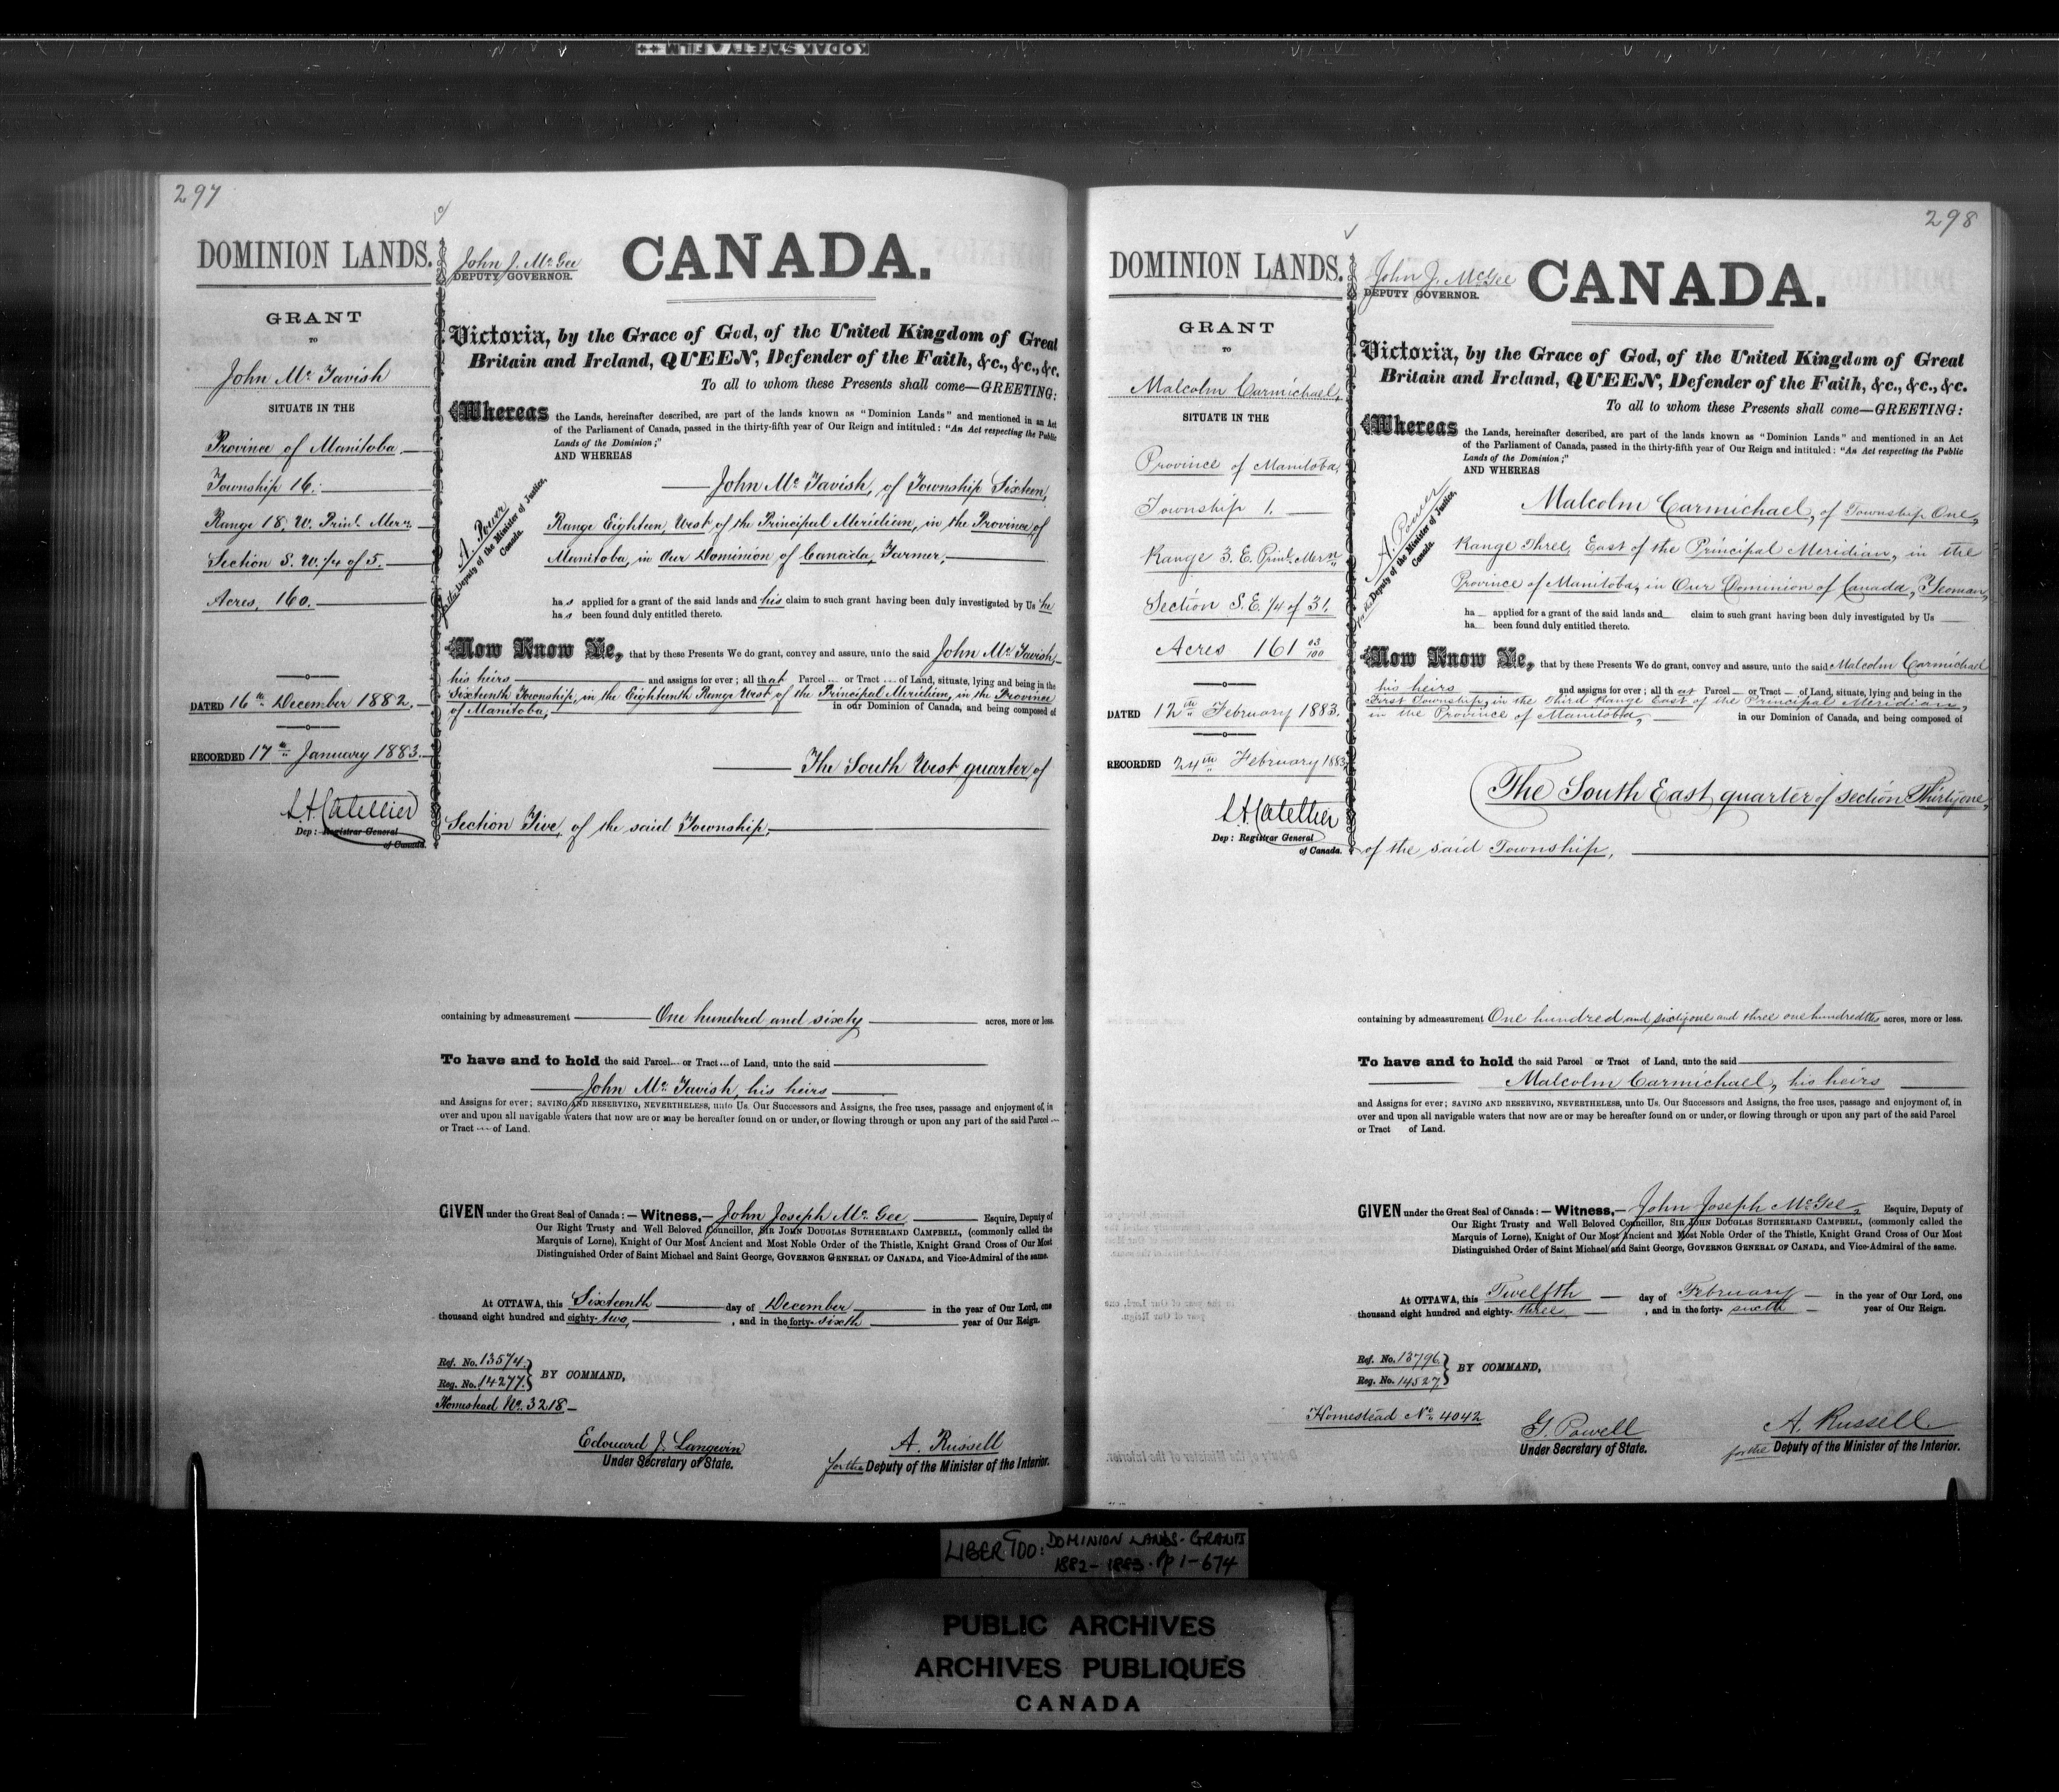 KODAK SAFETY FILM
297
DOMINION LANDS.
GRANT
TO
John Mc Tavish
SITUATE IN THE
Province of Manitoba
Township 16.
Range 18, W. Prinl. Mern.
Section S. W. 1/4 of 5.
Acres, 160.
DATED 16th December 1882.
RECORDED 17th January 1883.
L.A. Catellier
Dep: Registrar General
of Canada.
John J. Mc Gee
DEPUTY GOVERNOR.
CANADA.
Victoria, by the Grace of God, of the United Kingdom of Great
Britain and Ireland, QUEEN, Defender of the Faith, &c., &c., &c.
To all to whom these Presents shall come—GREETING:
Whereas the Lands, hereinafter described, are part of the lands known as "Dominion Lands" and mentioned in an Act
of the Parliament of Canada, passed in the thirty-fifth year of Our Reign and intituled: "An Act respecting the Public
Lands of the Dominion;"
AND WHEREAS
A. Power
for the Deputy of the Minister of Justice,
Canada.
John Mc Tavish, of Township Sixteen,
Range Eighteen, West of the Principal Meridian, in the Province of
Manitoba, in Our Dominion of Canada, Farmer,
has applied for a grant of the said lands and his claim to such grant having been duly investigated by Us he
has been found duly entitled thereto.
Now Know Ye, that by these Presents We do grant, convey and assure, unto the said John Mc Tavish
his heirs and assigns for ever; all that Parcel or Tract of Land, situate, lying and being in the
Sixteenth Township, in the Eighteenth Range West of the Principal Meridian, in the Province
of Manitoba, in our Dominion of Canada, and being composed of
The South West quarter of
Section Five, of the said Township,
containing by admeasurement One hundred and sixty acres, more or less.
To have and to hold the said Parcel or Tract of Land, unto the said
John Mc Tavish, his heirs
and Assigns for ever; SAVING AND RESERVING, NEVERTHELESS, unto Us, Our Successors and Assigns, the free uses, passage and enjoyment of, in
over and upon all navigable waters that now are or may be hereafter found on or under, or flowing through or upon any part of the said Parcel
or Tract of Land.
GIVEN under the Great Seal of Canada:—Witness,—John Joseph Mc Gee Esquire, Deputy of
Our Right Trusty and Well Beloved Councillor, SIR JOHN DOUGLAS SUTHERLAND CAMPBELL, (commonly called the
Marquis of Lorne), Knight of Our Most Ancient and Most Noble Order of the Thistle, Knight Grand Cross of Our Most
Distinguished Order of Saint Michael and Saint George, GOVERNOR GENERAL OF CANADA, and Vice-Admiral of the same.
At OTTAWA, this Sixteenth day of December in the year of Our Lord, one
thousand eight hundred and eighty-two, , and in the forty-sixth year of Our Reign.
Ref. No. 13574.
Reg. No. 14277.
BY COMMAND,
Homestead No. 3218.
Edouard J. Langevin
Under Secretary of State.
A. Russell
for the Deputy of the Minister of the Interior.
298
DOMINION LANDS.
GRANT
TO
Malcolm Carmichael,
SITUATE IN THE
Province of Manitoba,
Township 1.
Range 3. E. Prinl. Mern
Section S.E. 1/4 of 31.
Acres 161 03/100
DATED 12th February 1883.
RECORDED 24th February 1883
L.A. Catellier
Dep: Registrar General
of Canada.
John J. McGee
DEPUTY GOVERNOR.
CANADA.
Victoria, by the Grace of God, of the United Kingdom of Great
Britain and Ireland, QUEEN, Defender of the Faith, &c., &c., &c.
To all to whom these Presents shall come—GREETING:
Whereas the Lands, hereinafter described, are part of the lands known as "Dominion Lands" and mentioned in an Act
of the Parliament of Canada, passed in the thirty-fifth year of Our Reign and intituled: "An Act respecting the Public
Lands of the Dominion;"
AND WHEREAS
A. Power
for the Deputy of the Minister of Justice,
Canada.
Malcolm Carmichael, of Township One,
Range Three, East of the Principal Meridian, in the
Province of Manitoba, in Our Dominion of Canada, Yeoman,
ha applied for a grant of the said lands and claim to such grant having been duly investigated by Us
ha been found duly entitled thereto.
Now Know Ye, that by these Presents We do grant, convey and assure, unto the said Malcolm Carmichael
his heirs and assigns for ever; all that Parcel or Tract of Land, situate, lying and being in the
First Township, in the Third Range East of the Principal Meridian,
in the Province of Manitoba, in our Dominion of Canada, and being composed of
The South East quarter of Section Thirty one,
of the said Township,
containing by admeasurement One hundred and sixty one and three one hundredths acres, more or less.
To have and to hold the said Parcel or Tract of Land, unto the said
Malcolm Carmichael, his heirs
and Assigns for ever; SAVING AND RESERVING, NEVERTHELESS, unto Us, Our Successors and Assigns, the free uses, passage and enjoyment of, in
over and upon all navigable waters that now are or may be hereafter found on or under, or flowing through or upon any part of the said Parcel
or Tract of Land.
GIVEN under the Great Seal of Canada:—Witness,—John Joseph McGee, Esquire, Deputy of
Our Right Trusty and Well Beloved Councillor, SIR JOHN DOUGLAS SUTHERLAND CAMPBELL, (commonly called the
Marquis of Lorne), Knight of Our Most Ancient and Most Noble Order of the Thistle, Knight Grand Cross of Our Most
Distinguished Order of Saint Michael and Saint George, GOVERNOR GENERAL OF CANADA, and Vice-Admiral of the same.
At OTTAWA, this Twelfth day of February in the year of Our Lord, one
thousand eight hundred and eighty-three , and in the forty-sixth year of Our Reign.
Ref. No. 13796.
Reg. No. 14527
BY COMMAND,
Homestead No. 4042
G. Powell
Under Secretary of State.
A. Russell
for the Deputy of the Minister of the Interior.
LIBER 700: DOMINION LANDS-GRANTS
1882-1883. Pp 1-674
PUBLIC ARCHIVES
ARCHIVES PUBLIQUES
CANADA